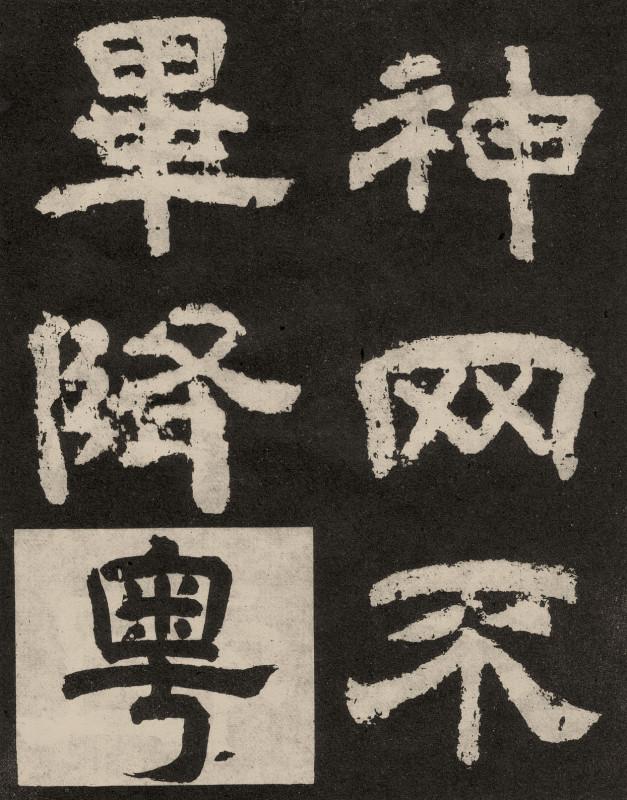 神网不
畢降粵